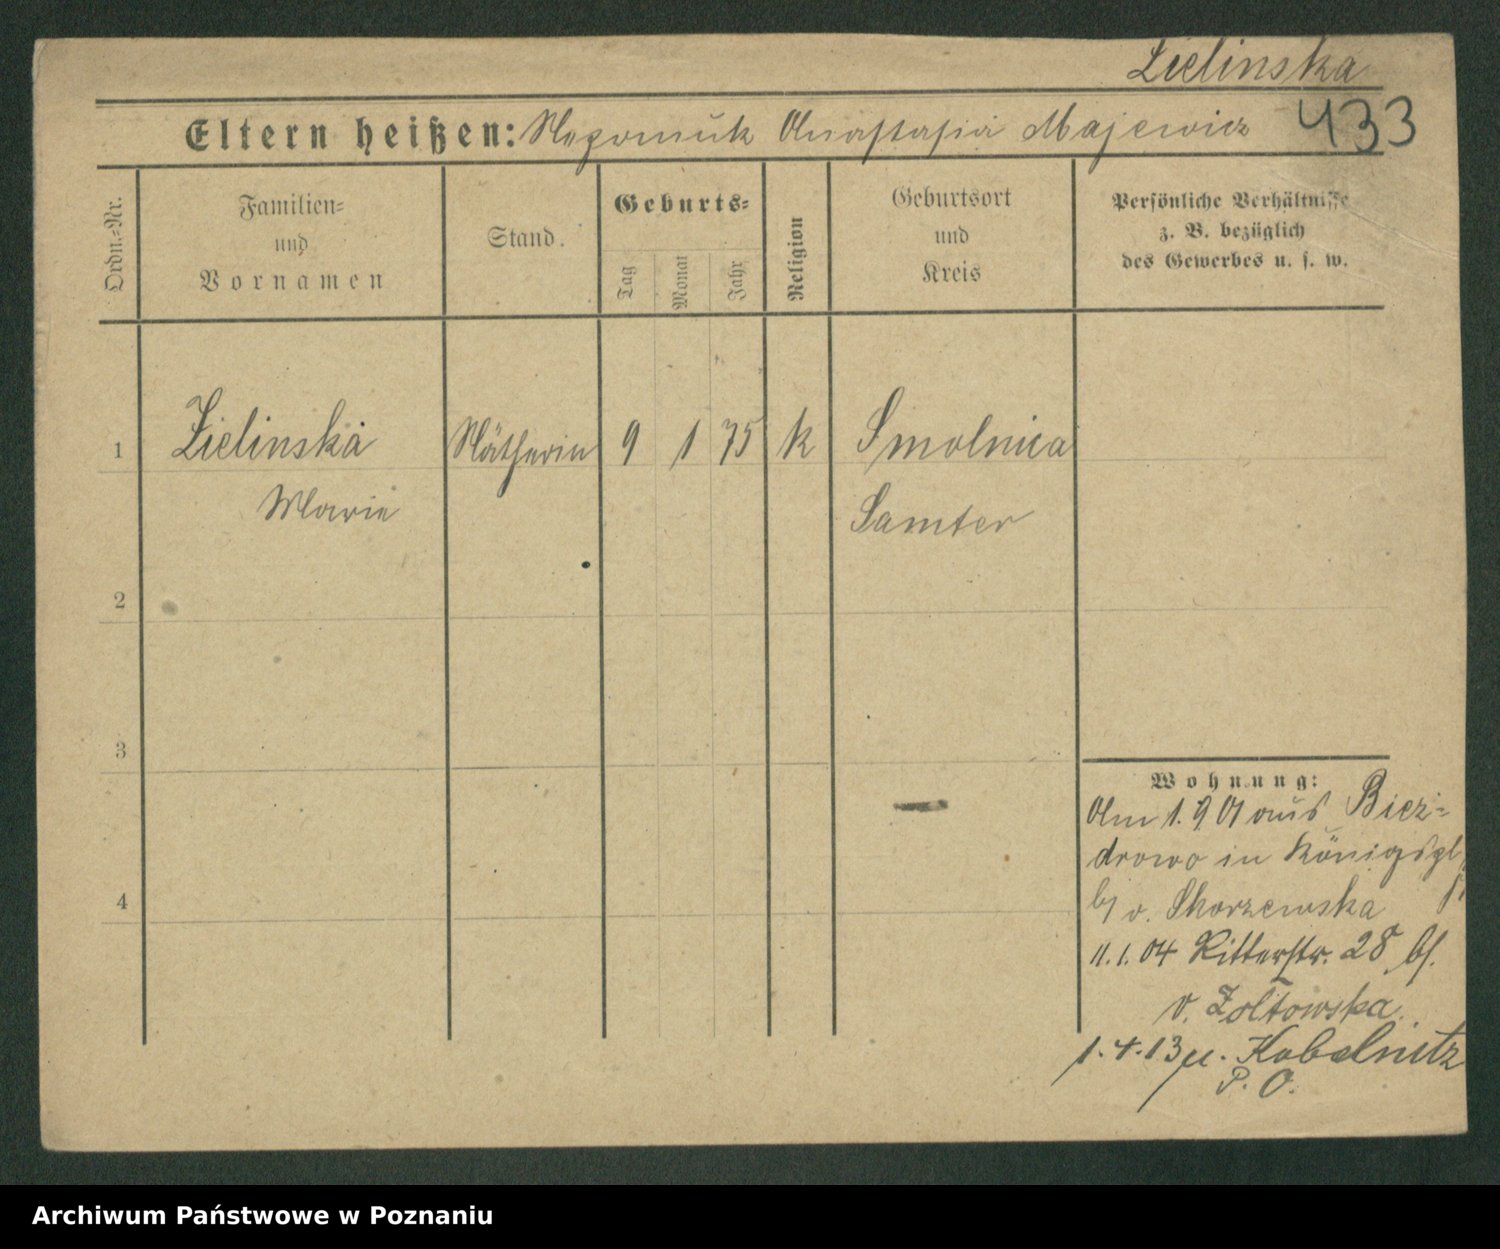 Zielinska
433
Eltern heißen: Nepomuk Anastasia Majewicz
Ordn.-Nr.
Familien=
und
Vornamen
Stand.
Geburts=
Tag
Monat
Jahr
Religion
Geburtsort
und
Kreis
Persönliche Verhältnisse
z. B. bezüglich
des Gewerbes u. s. w.
1 Zielinska Nätherin 9 1 75 k Smolnica
Marie Samter
2
3
4
Wohnung:
Am 1.9 01 aus Biez=
drowo in Königspl
bj v. Skorzewska
11.1.04 Ritterstr. 28 bj.
v. Zoltowska.
1.4.13 n. Kobelnitz
P. O.
Archiwum Państwowe w Poznaniu